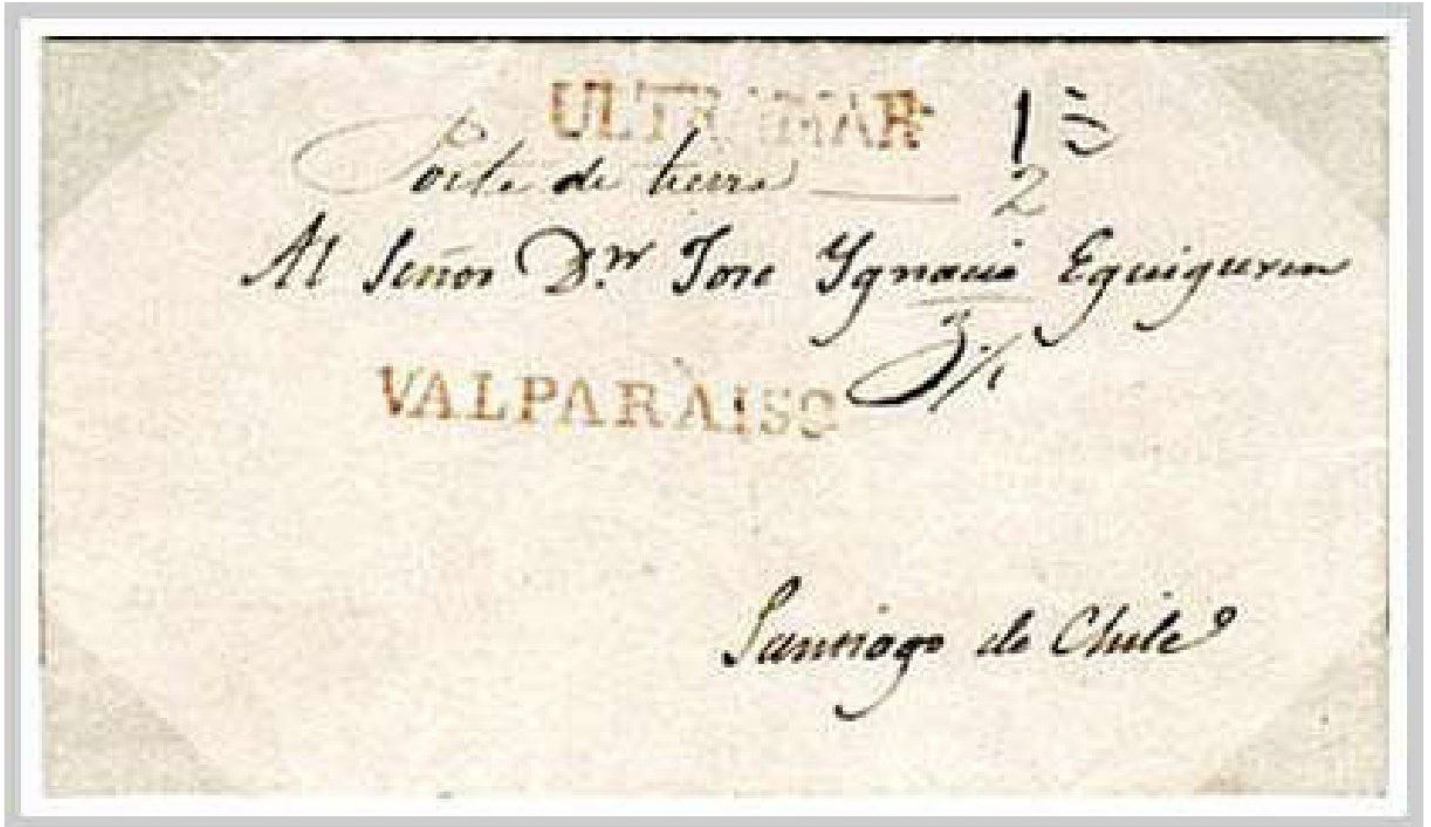 ULTRAMAR
Porte de tierra 2
Al Señor Dn Jose Ygnacio Eguiguren
VALPARAISO
Santiago de Chile